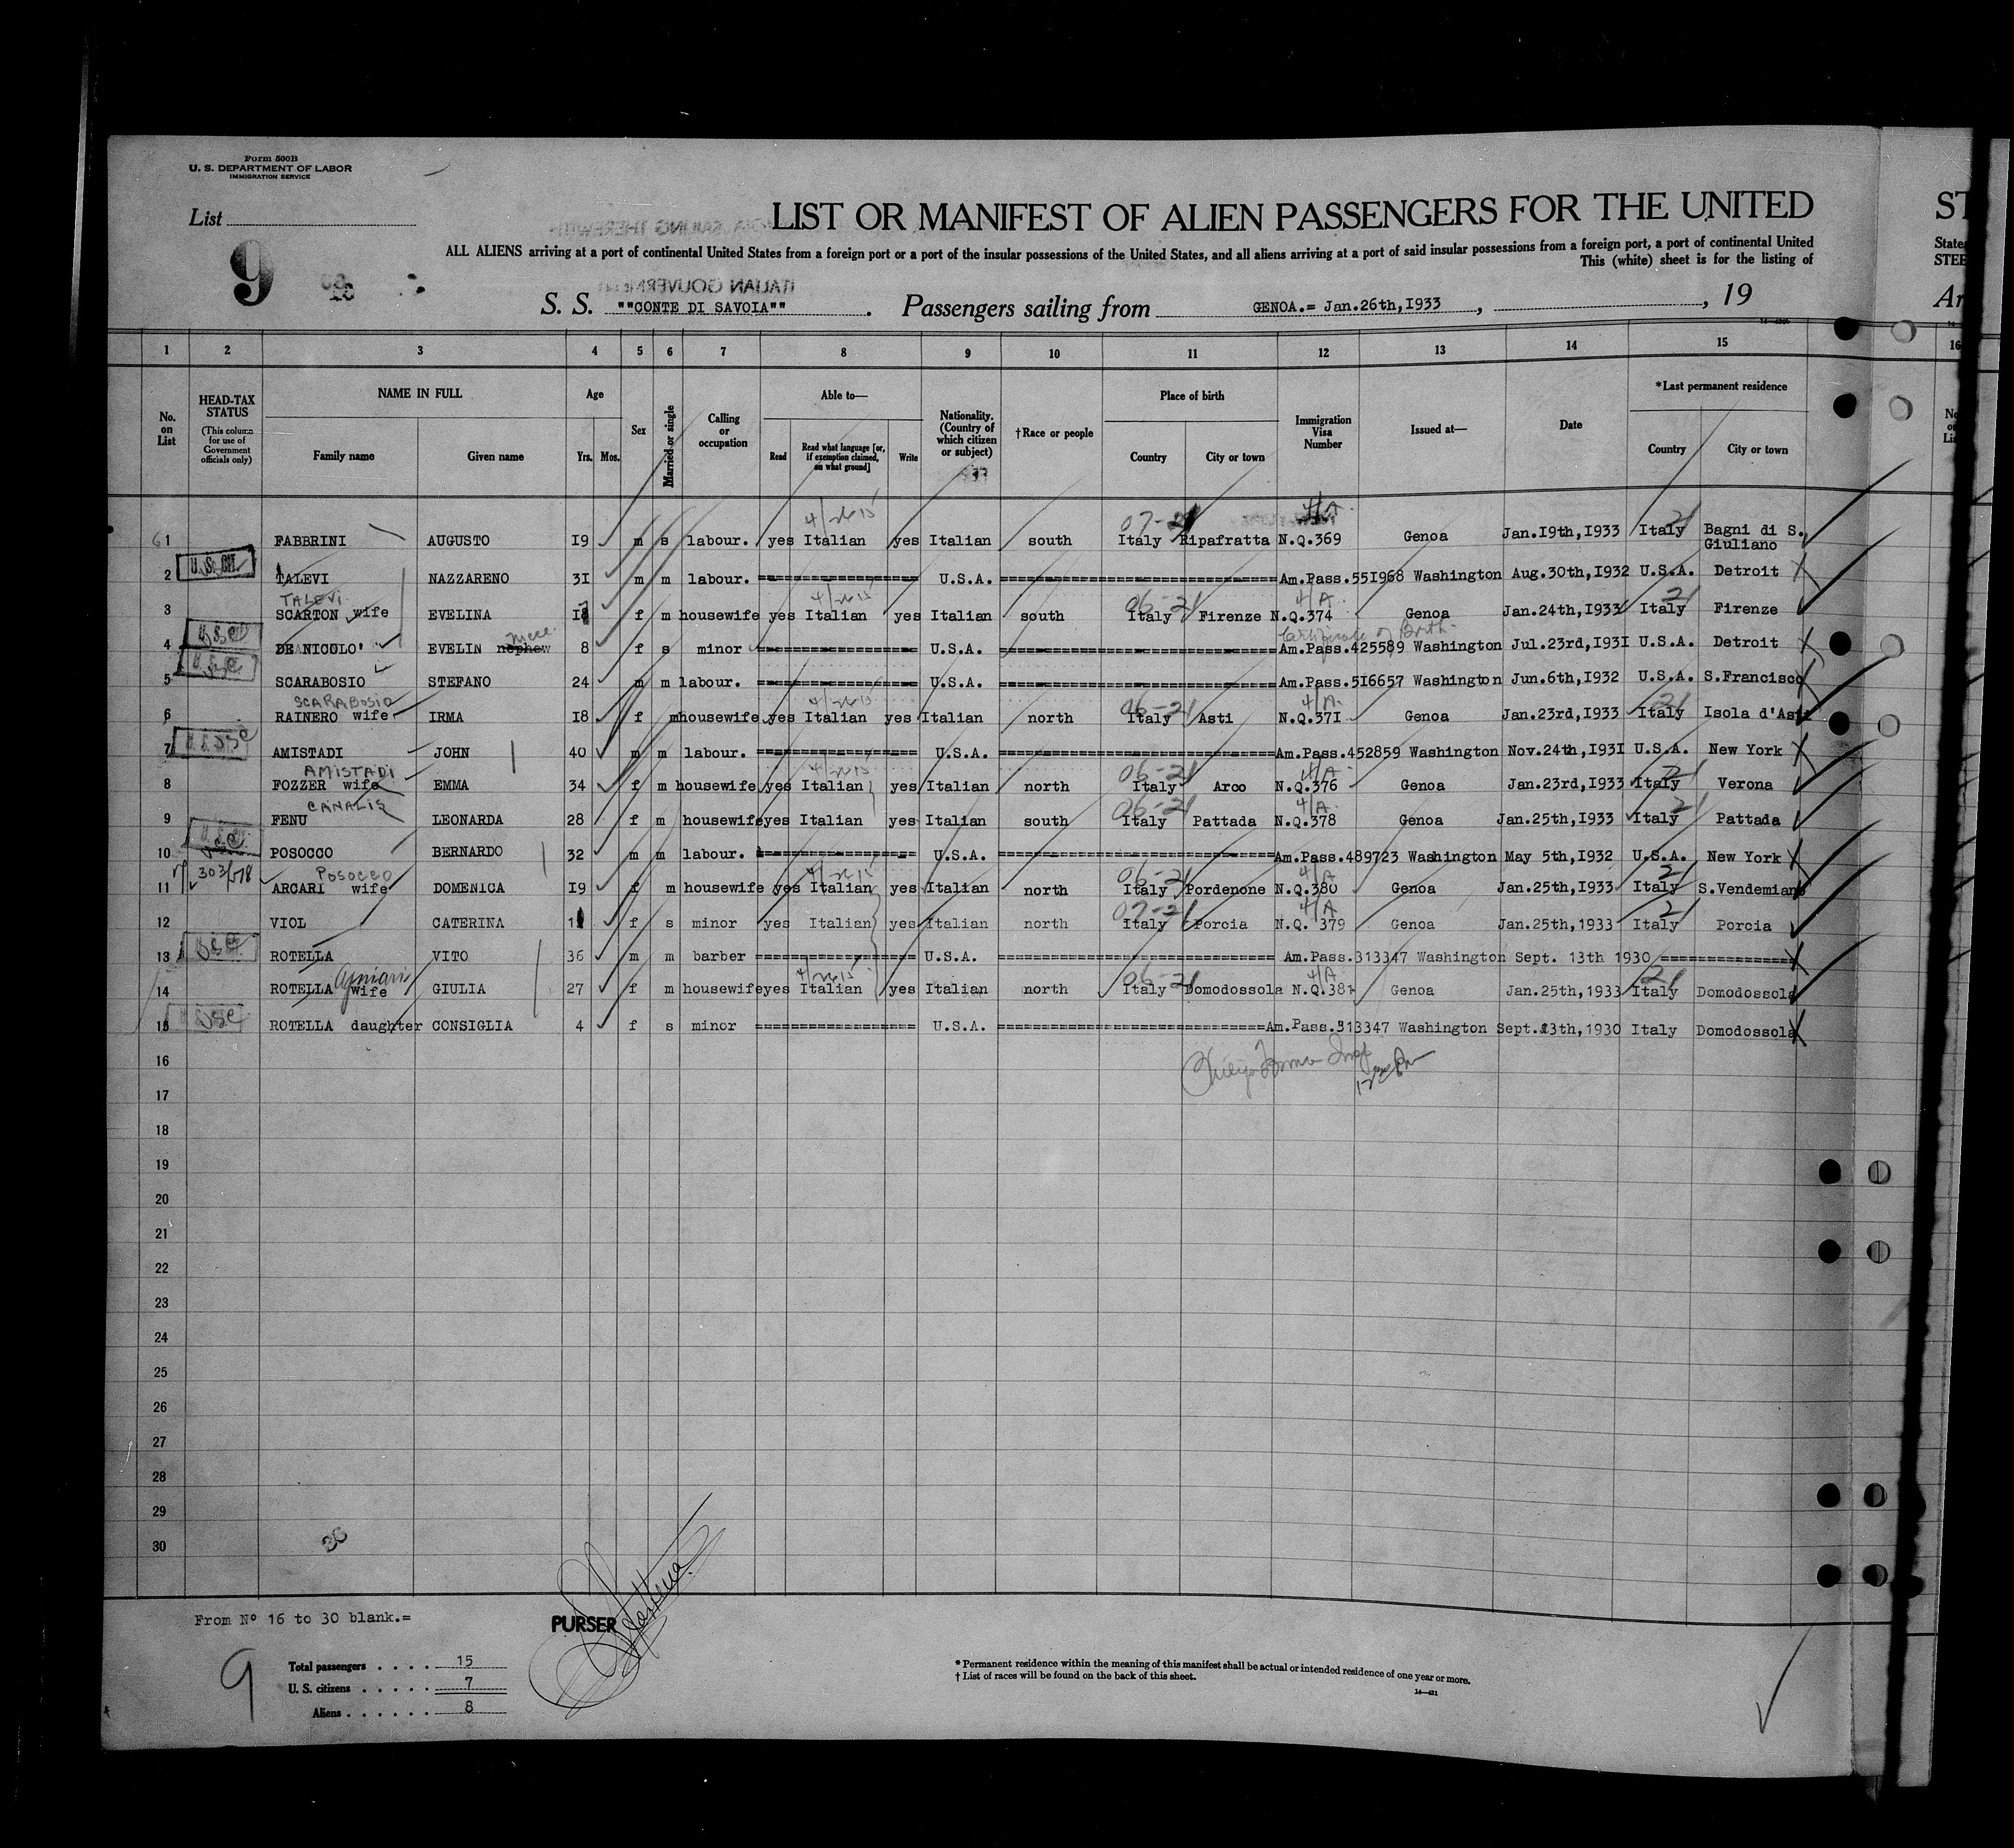 Form 500B
U. S. DEPARTMENT OF LABOR
IMMIGRATION SERVICE
List
9
LIST OR MANIFEST OF ALIEN PASSENGERS FOR THE UNITED
ST
ALL ALIENS arriving at a port of continental United States from a foreign port or a port of the insular possessions of the United States, and all aliens arriving at a port of said insular possessions from a foreign port, a port of continental United
State
This (white) sheet is for the listing of
STEE
ITALIAN GOUVERNEMENT
S. S. ""CONTE DI SAVOIA"" . Passengers sailing from GENOA.= Jan.26th,I933 , , 19
Ar
1 2 3 4 5 6 7 8 9 10 11 12 13 14 15 16
No. on List
HEAD-TAX STATUS (This column for use of Government officials only)
NAME IN FULL Family name Given name
Age Yrs. Mos.
Sex
Married or single
Calling or occupation
Able to— Read Read what language [or, if exemption claimed, on what ground] Write
Nationality. (Country of which citizen or subject)
†Race or people
Place of birth Country City or town
Immigration Visa Number
Issued at—
Date
*Last permanent residence Country City or town
4/A
07-21
1 FABBRINI AUGUSTO I9 m s labour. yes Italian yes Italian south Italy Ripafratta N.Q.369 Genoa Jan.I9th,I933 Italy Bagni di S. Giuliano
U. S. CIT.
2 TALEVI NAZZARENO 3I m m labour. ====== U.S.A. ====== Am.Pass.55I968 Washington Aug.30th,I932 U.S.A. Detroit
TALEVI 06-21 4/A 21
3 SCARTON wife EVELINA I8 f m housewife yes Italian yes Italian south Italy Firenze N.Q.374 Genoa Jan.24th,I933 Italy Firenze
USC niece Certificate of Birth
4 DE NICOLO' EVELIN nephew 8 f s minor ====== U.S.A. ====== Am.Pass.425589 Washington Jul.23rd,I93I U.S.A. Detroit
USC
5 SCARABOSIO STEFANO 24 m m labour. ====== U.S.A. ====== Am.Pass.5I6657 Washington Jun.6th,I932 U.S.A. S.Francisco
SCARABOSIO 06-21 4/A 21
6 RAINERO wife IRMA I8 f m housewife yes Italian yes Italian north Italy Asti N.Q.37I Genoa Jan.23rd,I933 Italy Isola d'Asti
USC
7 AMISTADI JOHN 40 m m labour. ====== U.S.A. ====== Am.Pass.452859 Washington Nov.24th,I93I U.S.A. New York
AMISTADI 06-21 4/A 21
8 FOZZER wife EMMA 34 f m housewife yes Italian yes Italian north Italy Arco N.Q.376 Genoa Jan.23rd,I933 Italy Verona
CANALIS 06-21 4/A 21
9 FENU LEONARDA 28 f m housewife yes Italian yes Italian south Italy Pattada N.Q.378 Genoa Jan.25th,I933 Italy Pattada
USC
10 POSOCCO BERNARDO 32 m m labour. ====== U.S.A. ====== Am.Pass.489723 Washington May 5th,I932 U.S.A. New York
303/578 POSOCCO 06-21 4/A 21
11 ARCARI wife DOMENICA I9 f m housewife yes Italian yes Italian north Italy Pordenone N.Q.380 Genoa Jan.25th,I933 Italy S.Vendemiano
07-21 4/A 21
12 VIOL CATERINA 11 f s minor yes Italian yes Italian north Italy Porcia N.Q. 379 Genoa Jan.25th,1933 Italy Porcia
USC
13 ROTELLA VITO 36 m m barber ====== U.S.A. ====== Am.Pass.313347 Washington Sept. 13th 1930 ======
06-21 4/A 21
14 ROTELLA wife GIULIA 27 f m housewife yes Italian yes Italian north Italy Domodossola N.Q.381 Genoa Jan.25th,1933 Italy Domodossola
USC
15 ROTELLA daughter CONSIGLIA 4 f s minor ====== U.S.A. ====== Am.Pass.313347 Washington Sept.13th,1930 Italy Domodossola
16
17
18
19
20
21
22
23
24
25
26
27
28
29
30
30
From Nº 16 to 30 blank.=
PURSER
9
Total passengers . . . . 15
U. S. citizens . . . . . 7
Aliens . . . . . . 8
* Permanent residence within the meaning of this manifest shall be actual or intended residence of one year or more.
† List of races will be found on the back of this sheet.
14—421